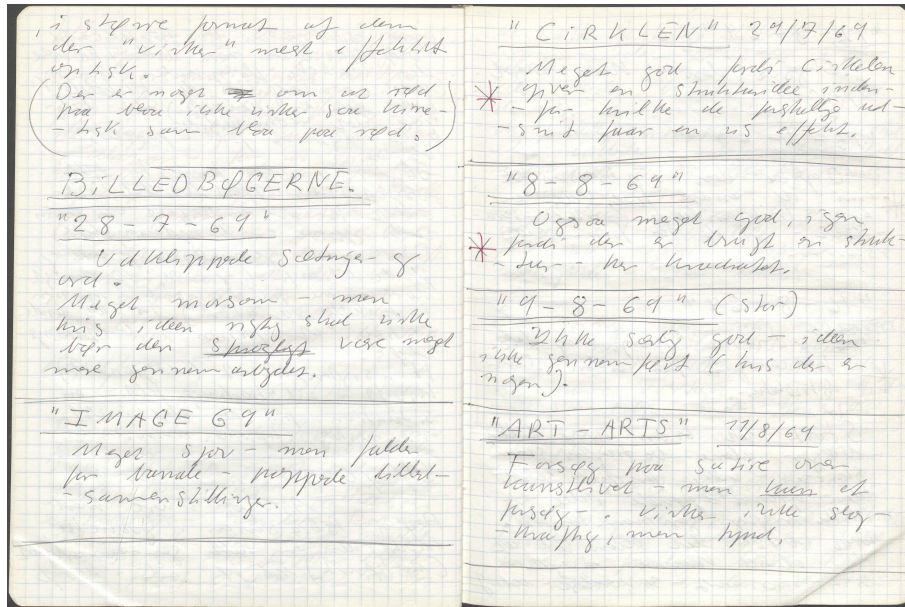 , i større format af dem
der "virker" meget effektfuldt
optisk.
(Der er noget om at rød
paa blaa ikke virker saa kine-
-tisk som blaa paa rød.)
BiLLEDBØGERNE.
"28-7-69"
Udklippede Sætninger og
ord.
Meget morsom - men
hvis ideen rigtig skal virke
bør den sprogligt være meget
mere gennemarbejdet.
"IMAGE 69"
Meget sjov - men falder
for banale - poppede billed-
-sammenstillinger.
"CiRKLEN" 29/7/69
Meget god fordi Cirkelen
giver en strukturidee inden-
-for hvilke de forskellige ud-
-snit faar en vis effekt.
"8-8-69"
Ogsaa meget god, igen
fordi der er brugt en struk-
-tur - her kvadratet.
"9-8-69" (stor)
Ikke særlig god - ideen
ikke gennemført (hvis der er
nogen).
"ART-ARTS" 11/8/69
Forsøg paa satire over
kunstlivet - men kun et
forsøg - virker ikke slag-
-kraftig, men tynd.